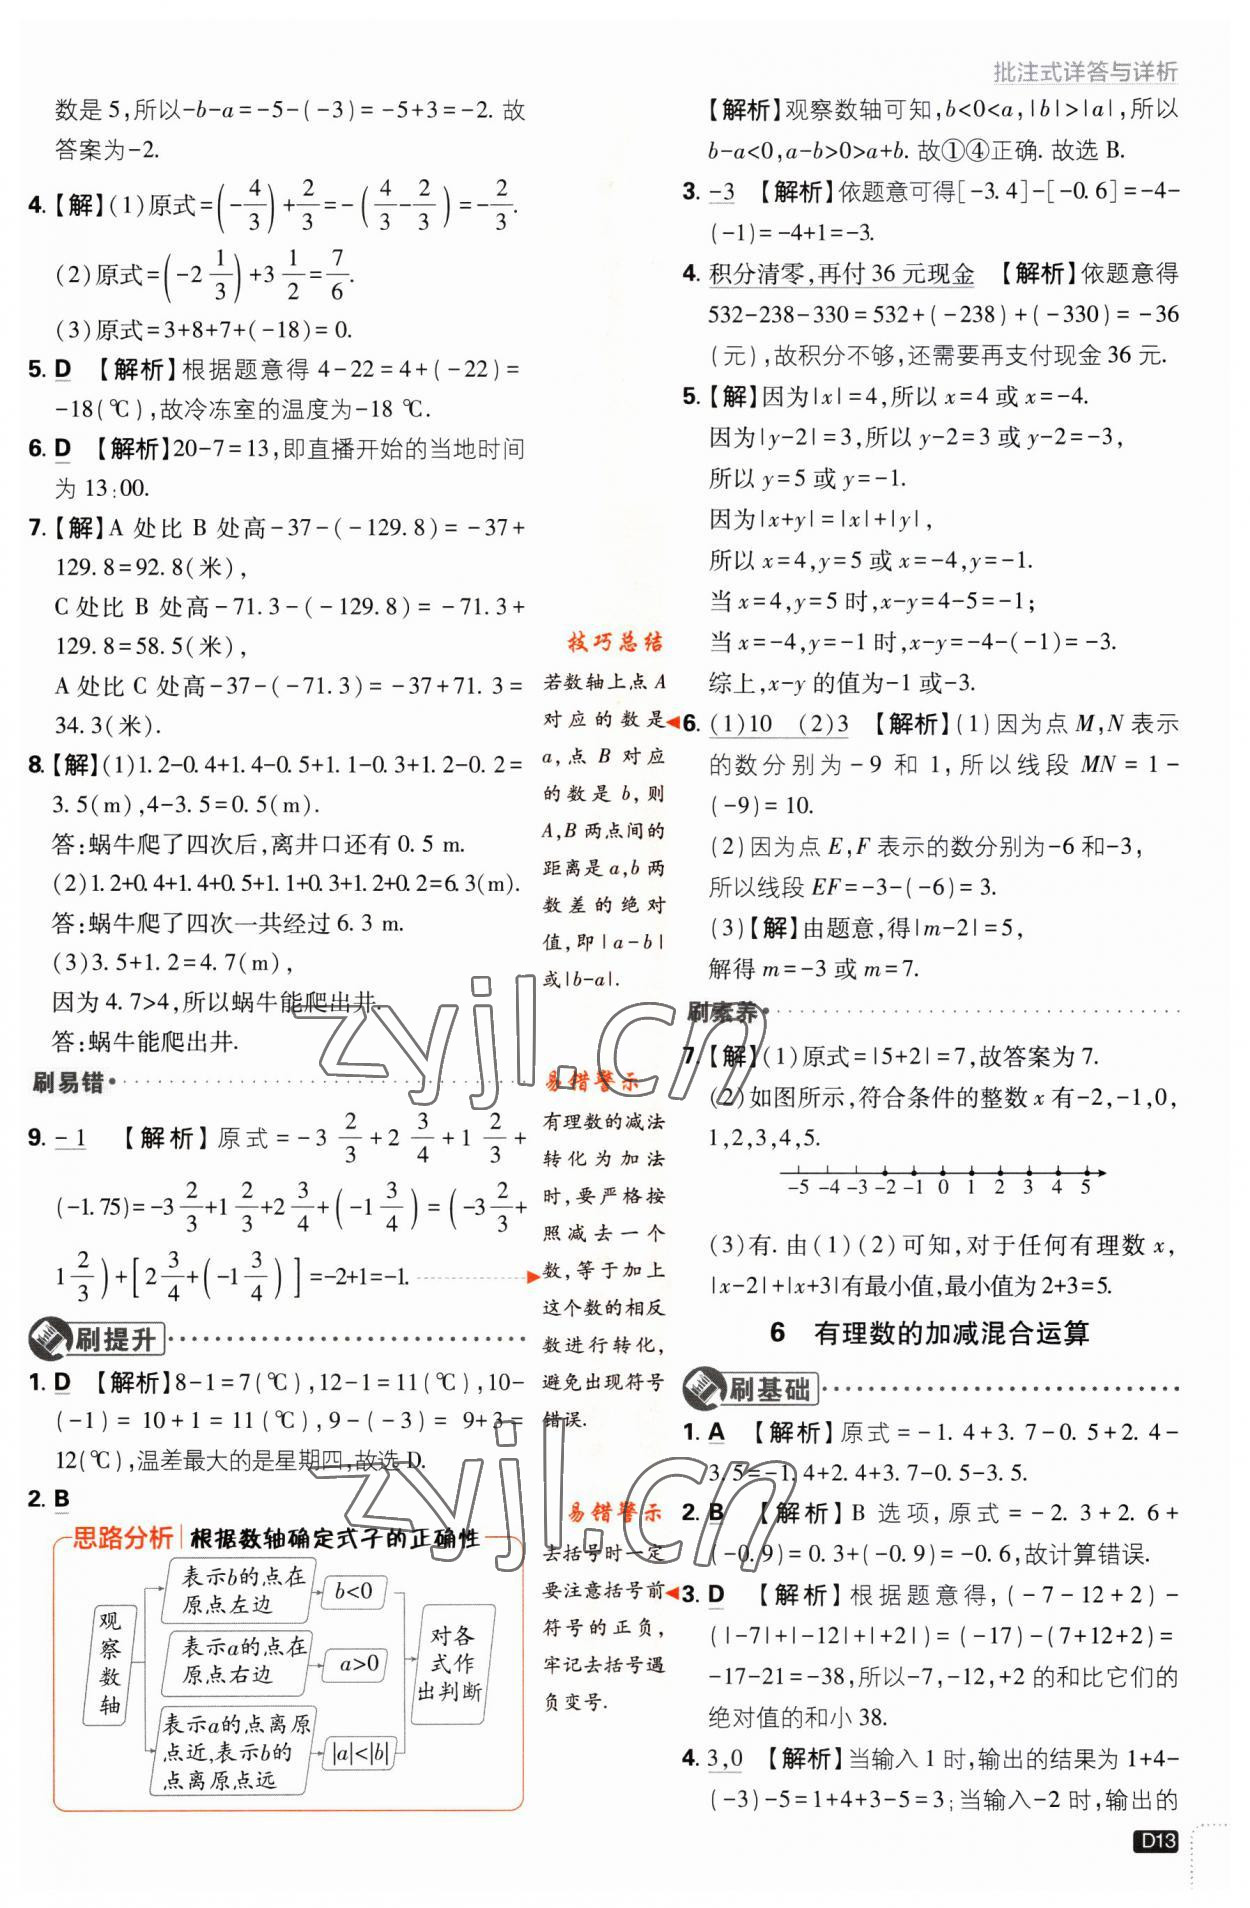 批注式详答与详析
数是 5,所以-b-a=-5-(-3)=-5+3=-2. 故
答案为-2.
4.【解】(1)原式=(-4/3)+2/3=-(4/3-2/3)=-2/3.
(2)原式=(-2 1/3)+3 1/2=7/6.
(3)原式=3+8+7+(-18)=0.
5. D 【解析】根据题意得 4-22=4+(-22)=
-18(℃),故冷冻室的温度为-18 ℃.
6. D 【解析】20-7=13,即直播开始的当地时间
为 13:00.
7.【解】A 处比 B 处高-37-(-129.8)=-37+
129.8=92.8(米),
C 处比 B 处高-71.3-(-129.8)=-71.3+
129.8=58.5(米),
A 处比 C 处高-37-(-71.3)=-37+71.3=
34.3(米).
8.【解】(1)1.2-0.4+1.4-0.5+1.1-0.3+1.2-0.2=
3.5(m),4-3.5=0.5(m).
答:蜗牛爬了四次后,离井口还有 0.5 m.
(2)1.2+0.4+1.4+0.5+1.1+0.3+1.2+0.2=6.3(m).
答:蜗牛爬了四次一共经过 6.3 m.
(3)3.5+1.2=4.7(m),
因为 4.7>4,所以蜗牛能爬出井.
答:蜗牛能爬出井.
刷易错
9. -1 【解析】原式=-3 2/3+2 3/4+1 2/3+
(-1.75)=-3 2/3+1 2/3+2 3/4+(-1 3/4)=(-3 2/3+
1 2/3)+[2 3/4+(-1 3/4)]=-2+1=-1.
刷提升
1. D 【解析】8-1=7(℃),12-1=11(℃),10-
(-1)=10+1=11(℃),9-(-3)=9+3=
12(℃),温差最大的是星期四,故选 D.
2. B
思路分析|根据数轴确定式子的正确性
观察数轴
表示b的点在
原点左边
b<0
表示a的点在
原点右边
a>0
表示a的点离原
点近,表示b的
点离原点远
|a|<|b|
对各
式作
出判断
技巧总结
若数轴上点 A
对应的数是
a,点 B 对应
的数是 b,则
A,B 两点间的
距离是 a,b 两
数差的绝对
值,即|a-b|
或|b-a|.
易错警示
有理数的减法
转化为加法
时,要严格按
照减去一个
数,等于加上
这个数的相反
数进行转化,
避免出现符号
错误.
易错警示
去括号时一定
要注意括号前
符号的正负,
牢记去括号遇
负变号.
【解析】观察数轴可知,b<0<a,|b|>|a|,所以
b-a<0,a-b>0>a+b. 故①④正确. 故选 B.
3. -3 【解析】依题意可得[-3.4]-[-0.6]=-4-
(-1)=-4+1=-3.
4. 积分清零,再付 36 元现金 【解析】依题意得
532-238-330=532+(-238)+(-330)=-36
(元),故积分不够,还需要再支付现金 36 元.
5.【解】因为|x|=4,所以 x=4 或 x=-4.
因为|y-2|=3,所以 y-2=3 或 y-2=-3,
所以 y=5 或 y=-1.
因为|x+y|=|x|+|y|,
所以 x=4,y=5 或 x=-4,y=-1.
当 x=4,y=5 时,x-y=4-5=-1;
当 x=-4,y=-1 时,x-y=-4-(-1)=-3.
综上,x-y 的值为-1 或-3.
6. (1)10 (2)3 【解析】(1)因为点 M,N 表示
的数分别为-9 和 1,所以线段 MN=1-
(-9)=10.
(2)因为点 E,F 表示的数分别为-6 和-3,
所以线段 EF=-3-(-6)=3.
(3)【解】由题意,得|m-2|=5,
解得 m=-3 或 m=7.
刷素养
7.【解】(1)原式=|5+2|=7,故答案为 7.
(2)如图所示,符合条件的整数 x 有-2,-1,0,
1,2,3,4,5.
-5 -4 -3 -2 -1 0 1 2 3 4 5
(3)有. 由(1)(2)可知,对于任何有理数 x,
|x-2|+|x+3|有最小值,最小值为 2+3=5.
6 有理数的加减混合运算
刷基础
1. A 【解析】原式=-1.4+3.7-0.5+2.4-
3.5=-1.4+2.4+3.7-0.5-3.5.
2. B 【解析】B 选项,原式=-2.3+2.6+
(-0.9)=0.3+(-0.9)=-0.6,故计算错误.
3. D 【解析】根据题意得,(-7-12+2)-
(|-7|+|-12|+|+2|)=(-17)-(7+12+2)=
-17-21=-38,所以-7,-12,+2 的和比它们的
绝对值的和小 38.
4. 3,0 【解析】当输入 1 时,输出的结果为 1+4-
(-3)-5=1+4+3-5=3;当输入-2 时,输出的
D13
zyjl.cn
zyjl.cn